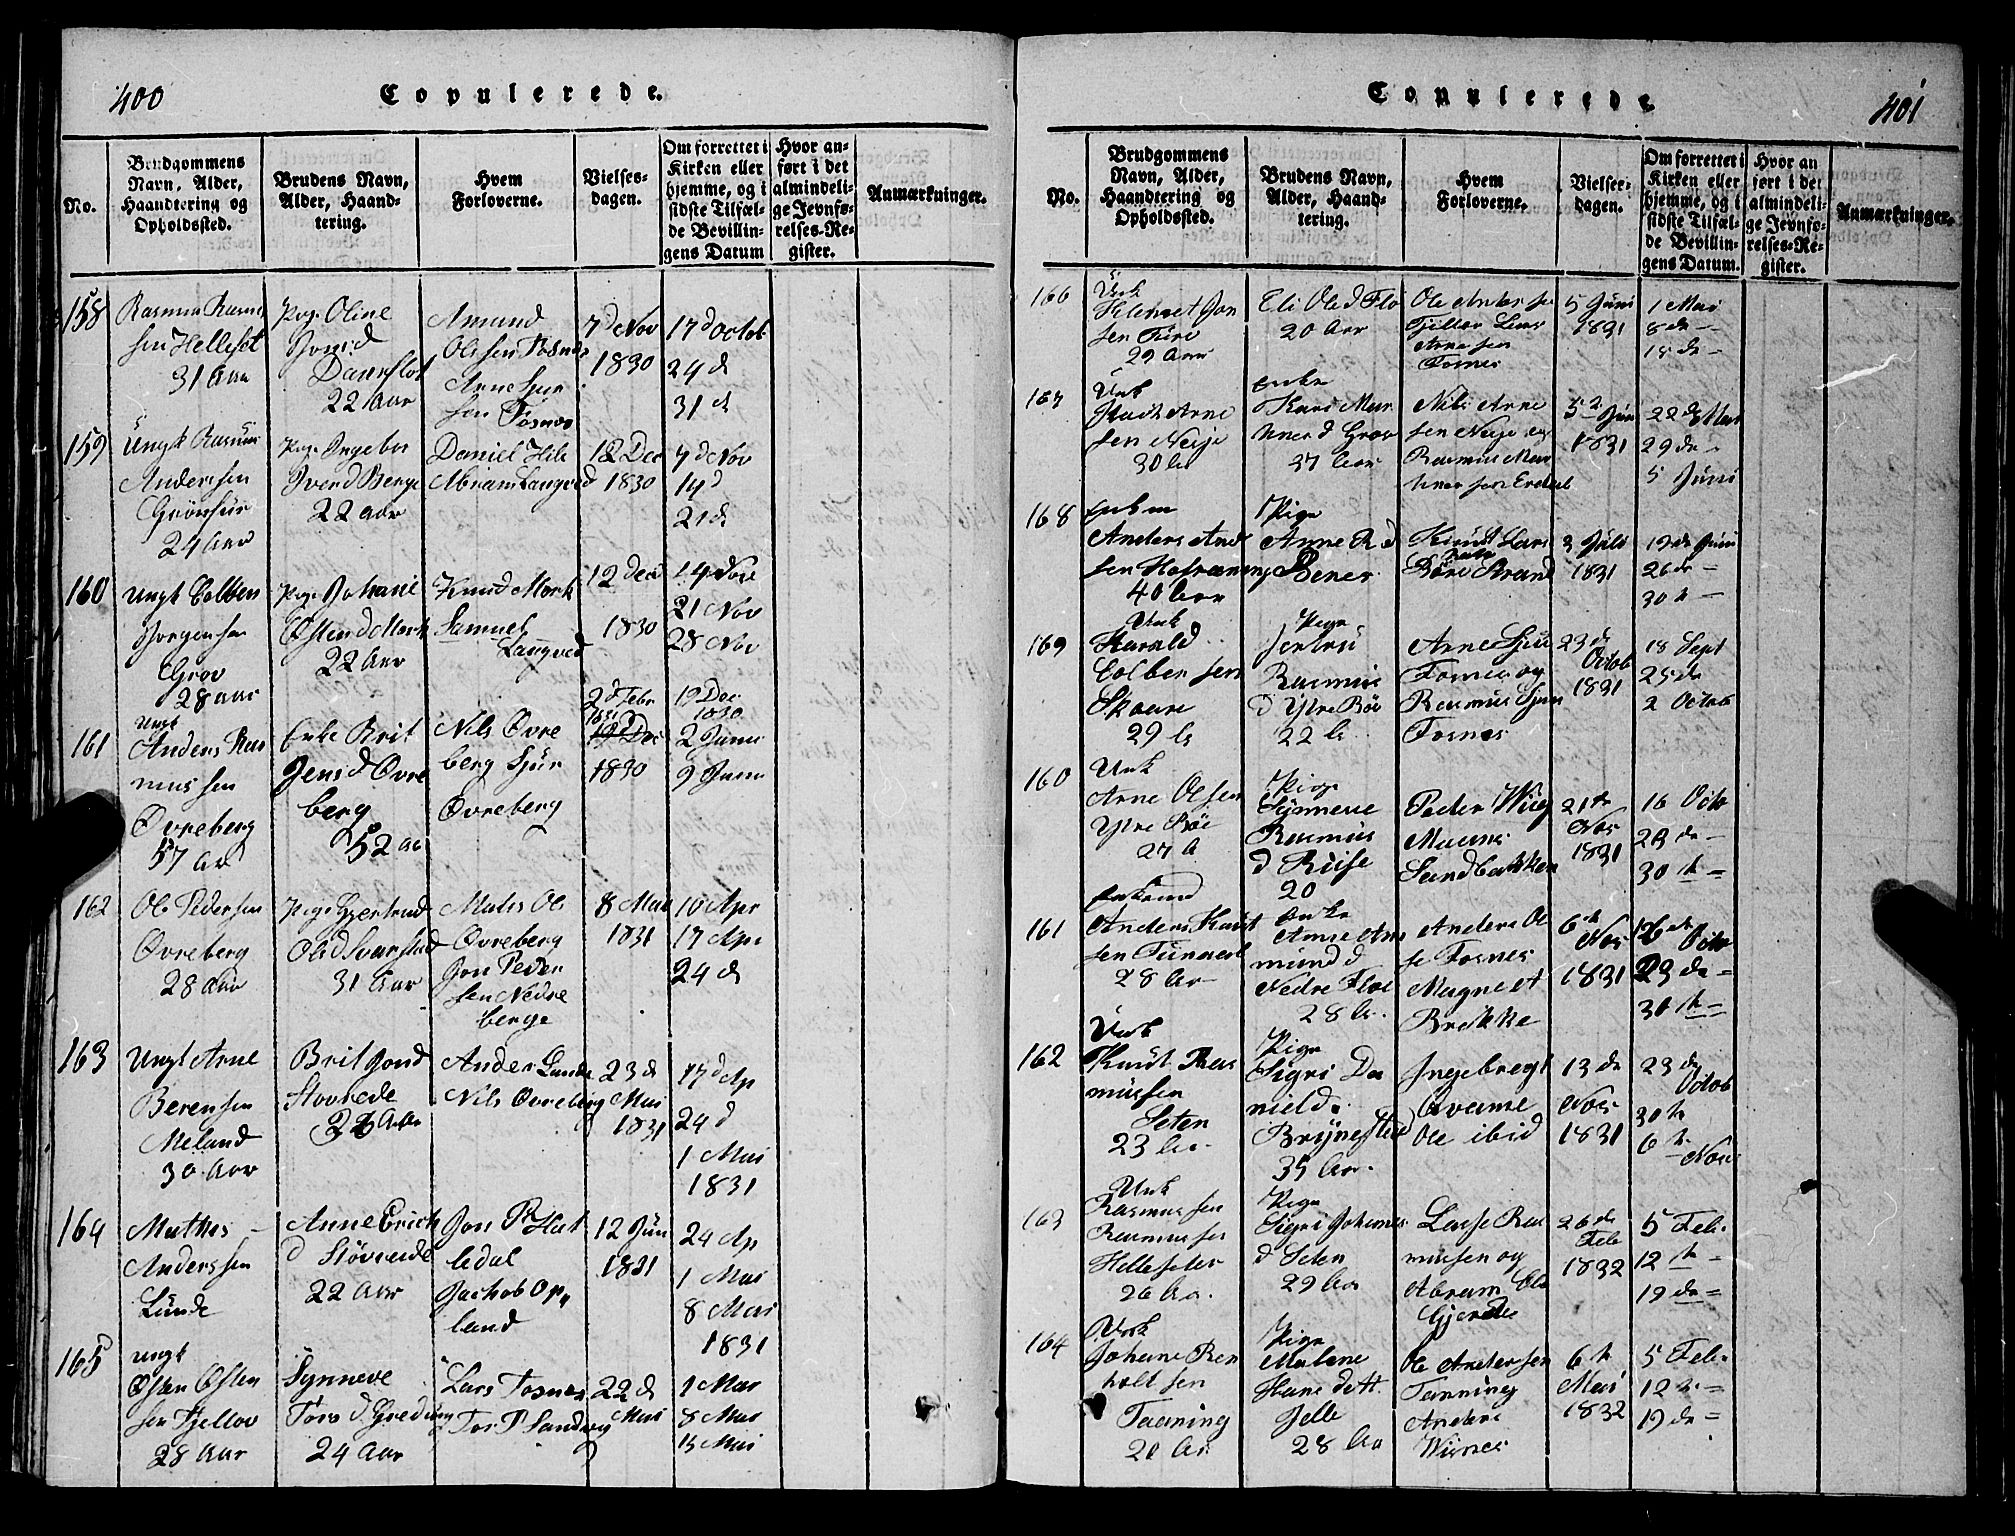 400
Copulerede.
No.
Brudgommens
Navn, Alder,
Haandtering og
Opholdssted.
Brudens Navn,
Alder, Haand-
tering.
Hvem
Forloverne.
Vielses-
dagen.
Om forrettet i
Kirken eller
hjemme, og i
sidste Tilfæl-
de Bevillin-
gens Datum
Hvor an-
ført i det
almindeli-
ge Jevnfø-
relses-Re-
gister.
Anmærkninger.
158
Rasmus Rasm
sen Helleset
31 Aar
Pige Oline
Jonsd
22 Aar
Amund
Olssen Fosnes
Arne Sjur
sen Fosnes
7 d Nov
1830
17 d Octob
24 d
31 d
159
Ungk Rasmus
Anderssen
24 Aar
Pige Ingebor
Iverd Berge
22 Aar
Daniel Hile
Abram Langved
12 Dec
1830
7 d Nov
14 d
21 d
160
Ungk Colben
Jørgensen
Grov
28 Aar
Pige Johane
Østend Mork
22 Aar
Knud Mork
Samuel
Langved
12 Dec
1830
14 Nov
21 Nov
28 Nov
161
Ungk
Anders Ras
mussen
Øvreberg
57 Ar
Enke Brit
Jensd Øvre
berg
52 Aar
Nils Øvre
berg Sjur
Øvreberg
2 d Febr
1831
19 Dec
1830
19 Dec
1830
2 Janu
9 Janu
162
Ole Pedersen
Øvreberg
28 Aar
Pige Gjertrud
Olsd Svarstad
31 Aar
Mats Ols
Øvreberg
Jon Peder
sen Nedre
berge
8 Mai
1831
10 Apr
17 Apr
24 d
163
Ungk Arne
Berensen
Meland
30 Aar
Brit Jonsd
Støvrede
Anders Lunde
Nils Øvreberg
23 d
Mai
1831
17 d Ap
24 d
1 Mai
1831
164
Mathes
Anderssen
Lunde
Anne Erich
d Støvrede
22 Aar
Jon R Hat
ledal
Jachob Op
land
12 Jun
1831
24 Ap
1 Mai
8 Mai
1831
165
Ungk
Østen Østen
sen Fjellov
28 Aar
Synneve
Tors d Gredung
24 Aar
Lars Fosnes
Tor P Sandvig
22 d
Mai
1 Mai
8 Mai
15 Mai
401
Copulerede
No.
Brudgommens
Navn, Alder,
Haandtering og
Opholdssted.
Brudens Navn,
Alder, Haand-
tering.
Hvem
Forloverne.
Vielses-
dagen.
Om forrettet i
Kirken eller
hjemme, og i
sidste Tilfæl-
de Bevillin-
gens Datum.
Hvor an
ført i det
almindeli-
ge Jevnfø-
relses-Re-
gister.
Anmærkninger.
166
Unk
Klemet Jon
sen Fure
29 Aar
Eli Ole d Flo
20 Aar
Ole Anders sen
Fjellov Lars
Arne sen
Fosnes
5 Juni
1831
1 Mai
8 de
15 de
167
Unk
Arne
sen Neije
30 Ar
Enke
Kari Mar
tines d Grov
37 Aar
Nils Arne
sen Neije og
Rasmus Mar
tines sen Erdal
5 d Jun
1831
22 de Mai
29 de
5 Juni
168
Enkem
Anders And
sen
40 Aar
Pige
Anne R d
Knud Lars
Børe Strand
3 Juli
1831
19 de Juni
26 de
30 te
169
Unk
Harald
Colbensen
Skaare
29 Ar
Pige
Jertru
Rasmus
d Ytre Böe
22 Ar
Arne Sju
Fosnes og
Rasmus Sjur
Fosnes
23 de
Octob
1831
18 Sept
25 de
2 Octob
160
Unk
Arne Olsen
Ytre Böe
27 A
Pige
Synneve
Rasmus
d Riise
20
Peder Wiig
Maurits
Sandbakken
21 te
Nov
1831
16 Octo
23 de
30 te
161
Enkemd
Anders Knut
sen
28 Ar
Enke
Anne Am
mund d
Nedre Floe
28 Ar.
Anders Ol
se Fosnes
Magne A
Brekke
6 te
Nov
1831
16 de Octo
23 de
30 te
162
Unk
Knut Ras
mussen
Seten
23 Ar
Pige
Sigri Da
nield.
Brynestad
35 Aar.
Ingebregt
Øvreme
Ole ibid
13 de
Nov
1831
23 de
Octob
30 te
6 te
Nov
163
Unk
Rasmussen
Rasmussen
Helleseter
26 Aar.
Pige
Sigri Johannes
d Seten
29 Aar
Larse Ras
mussen og
Abram Ole
Gjerde
26 de
Feb
1832
5 Feb.
12 te
19 de
164
Unk
Johanes Ren
holt sen
Taaning
20 Ar
Pige
Malene
Hans datt.
Jelle
28 Aar
Ole Andersen
Tanning
Anders
Wiines
6 te
Mai
1832
5 Feb.
12 te
19 de